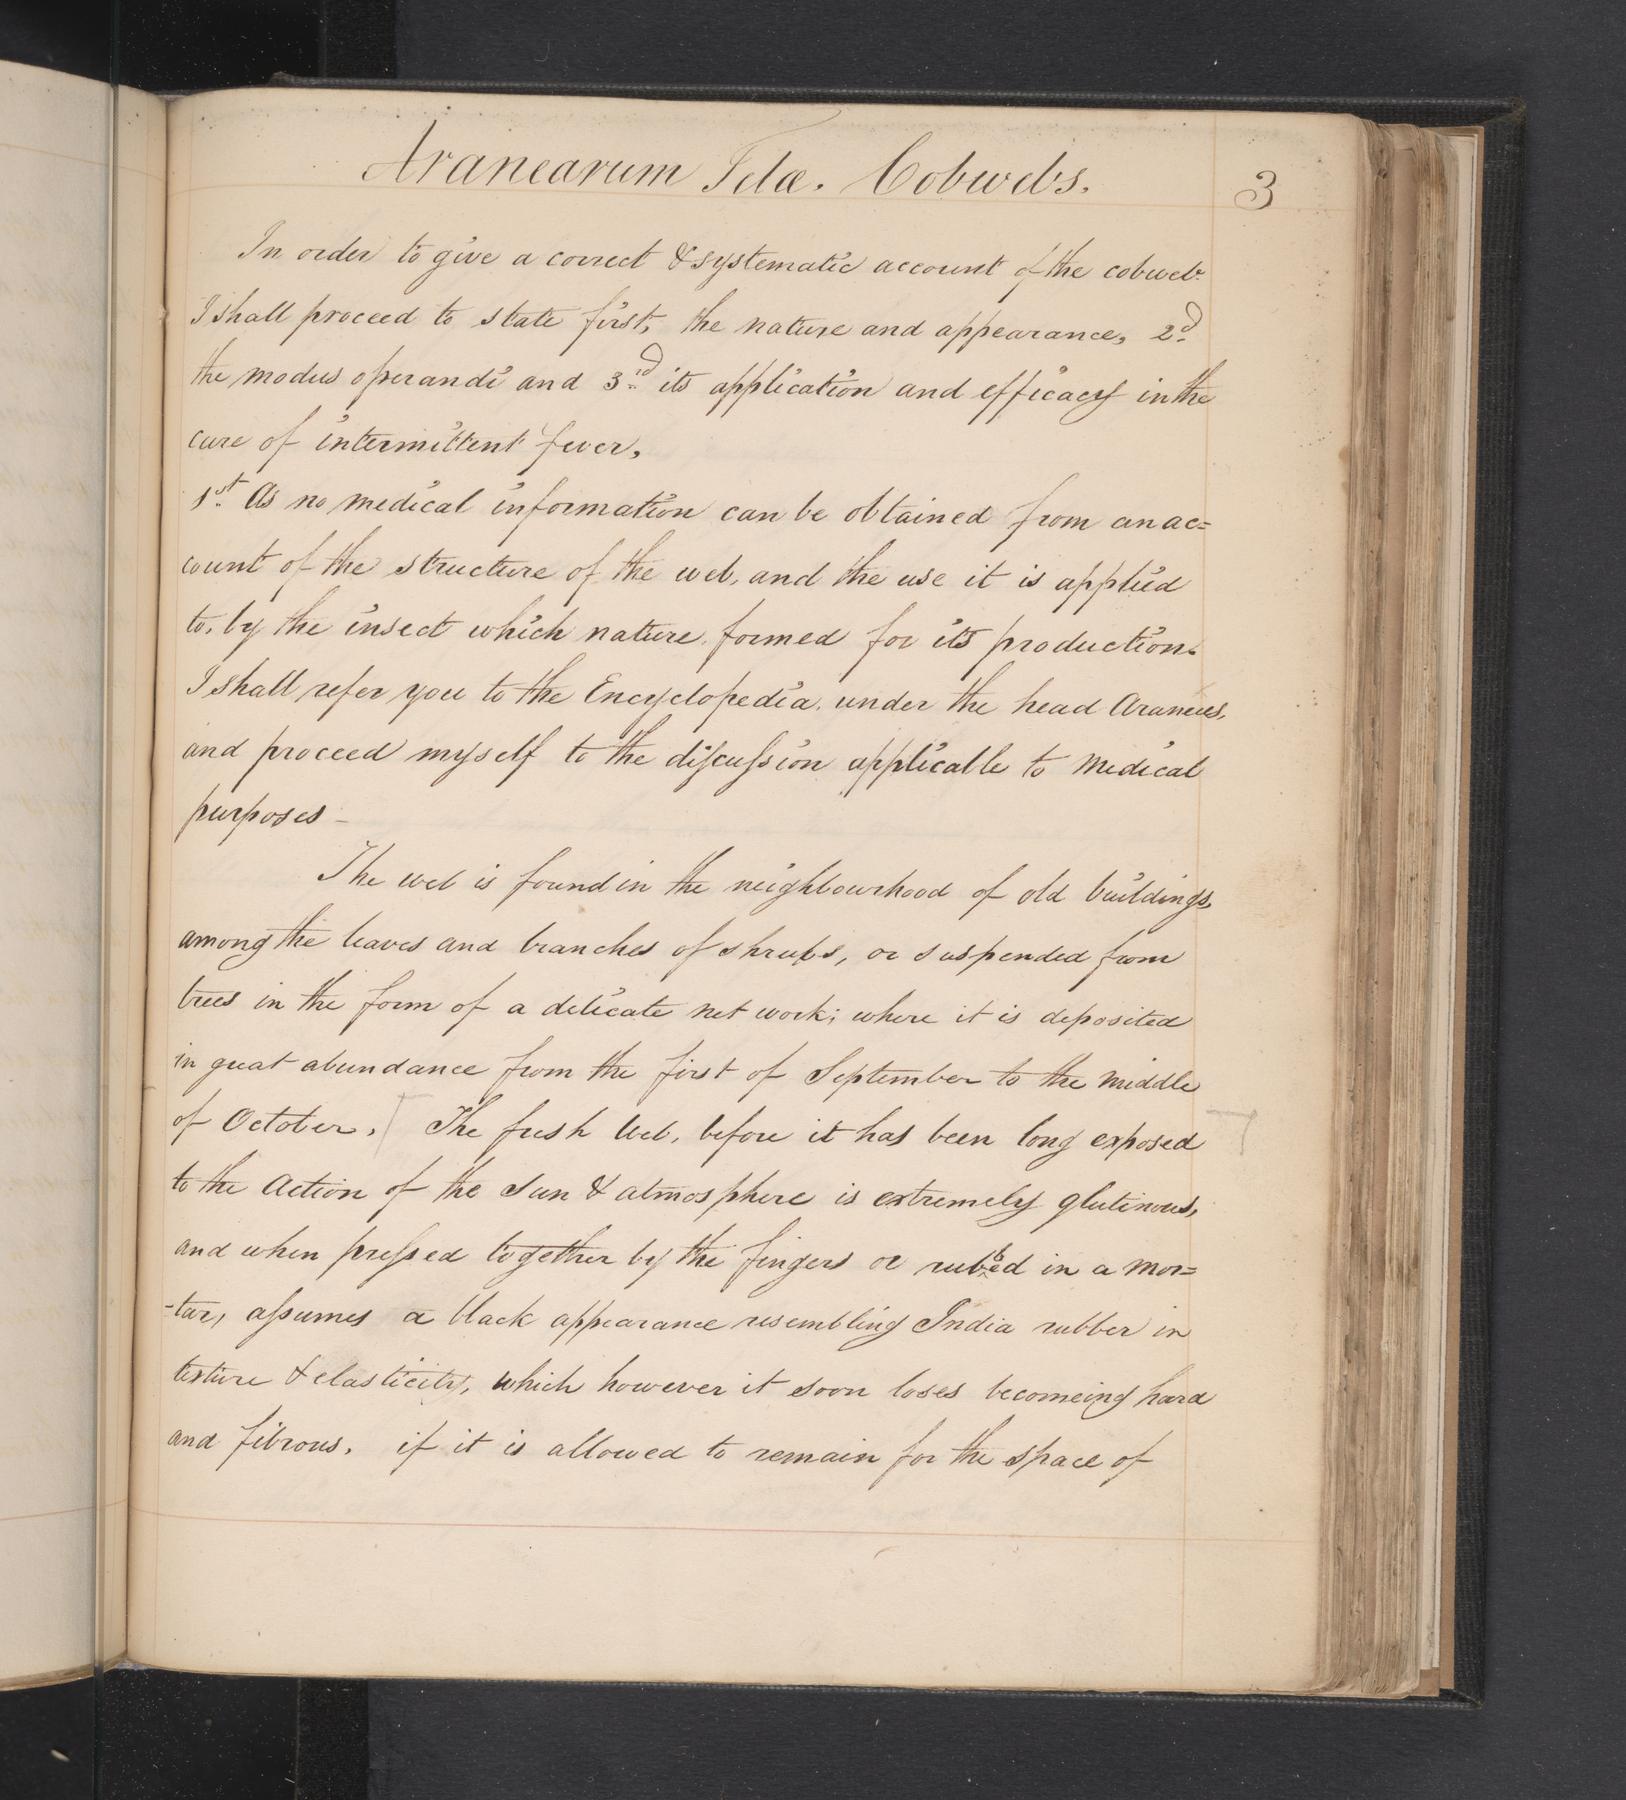 Aranearum Telæ. Cobwebs.
3
In order to give a correct & systematic account of the cobweb.
I shall proceed to state first, the nature and appearance, 2d.
the modus operandi and 3rd. its application and efficacy in the
cure of intermittent fever,
1st. As no medical information can be obtained from an ac=
count of the structure of the web, and the use it is applied
to, by the insect which nature formed for its production.
I shall refer you to the Encyclopedia. under the head Araneus,
and proceed myself to the discussion applicable to medical
purposes -
The web is found in the neighbourhood of old buildings,
among the leaves and branches of shrubs, or suspended from
trees in the form of a delicate net work; where it is deposited
in great abundance from the first of September to the middle
of October. [ The fresh web, before it has been long exposed
to the action of the Sun & atmosphere is extremely glutinous,
and when pressed together by the fingers or rubbed in a mor=
-tar, assumes a black appearance resembling India rubber in
texture & elasticity, which however it soon loses becomeing hard
and fibrous. if it is allowed to remain for the space of